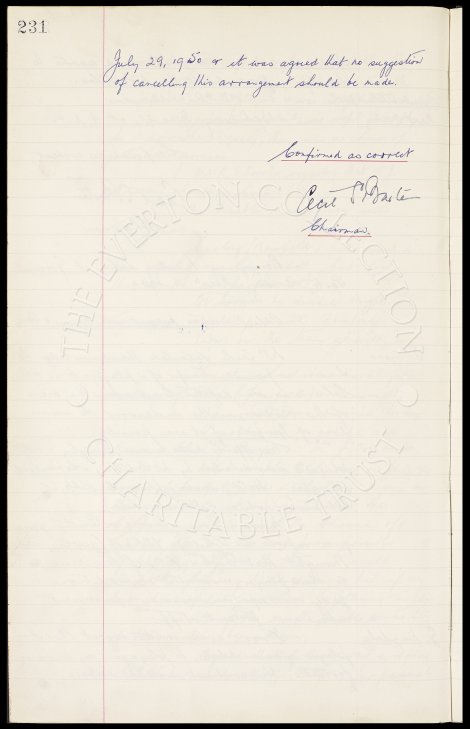 231
July 29, 1950 or it was agreed that no suggestion
of cancelling this arrangement should be made.
Confirmed as correct
Cecil S. Baxter
Chairman.
THE EVERTON COLLECTION
CHARITABLE TRUST